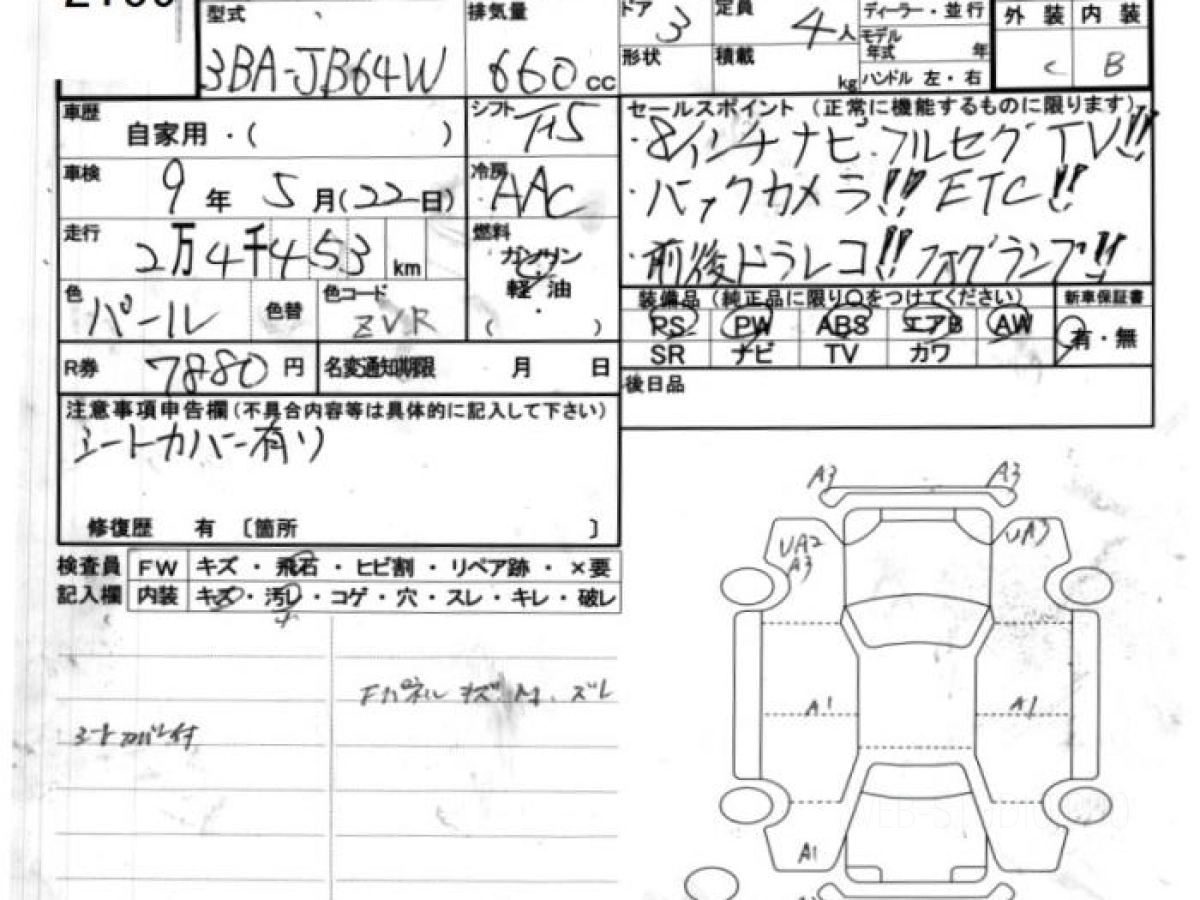 型式 排気量 ドア 3 定員 4人 ディーラー・並行 外装 内装
3BA-JB64W 660cc 形状 積載 kg モデル年式 年 C B
ハンドル 左・右
車歴 自家用・( ) シフト
セールスポイント (正常に機能するものに限ります)
・8インチナビ・フルセグTV!!
車検 9年 5月(22日) 冷房 AAC
・バックカメラ!! ETC!!
走行 2万4千453km 燃料 ガソリン・軽油
( )
・前後ドラレコ!! フォグランプ!!
色 パール 色替 色コード ZVR
装備品 (純正品に限り○をつけてください) 新車保証書
PS PW ABS エアB AW 有・無
SR ナビ TV カワ
R券 7880円 名変通知期限 月 日
後日品
注意事項申告欄(不具合内容等は具体的に記入して下さい)
シートカバー有り
修復歴 有 〔箇所 〕
検査員 FW キズ・飛石・ヒビ割・リペア跡・×要
記入欄 内装 キズ・汚レ・コゲ・穴・スレ・キレ・破レ
Fパネル キズ ズレ
シートカバー付
A3 A3
UA2 UA3
A3
A1 A1
A1